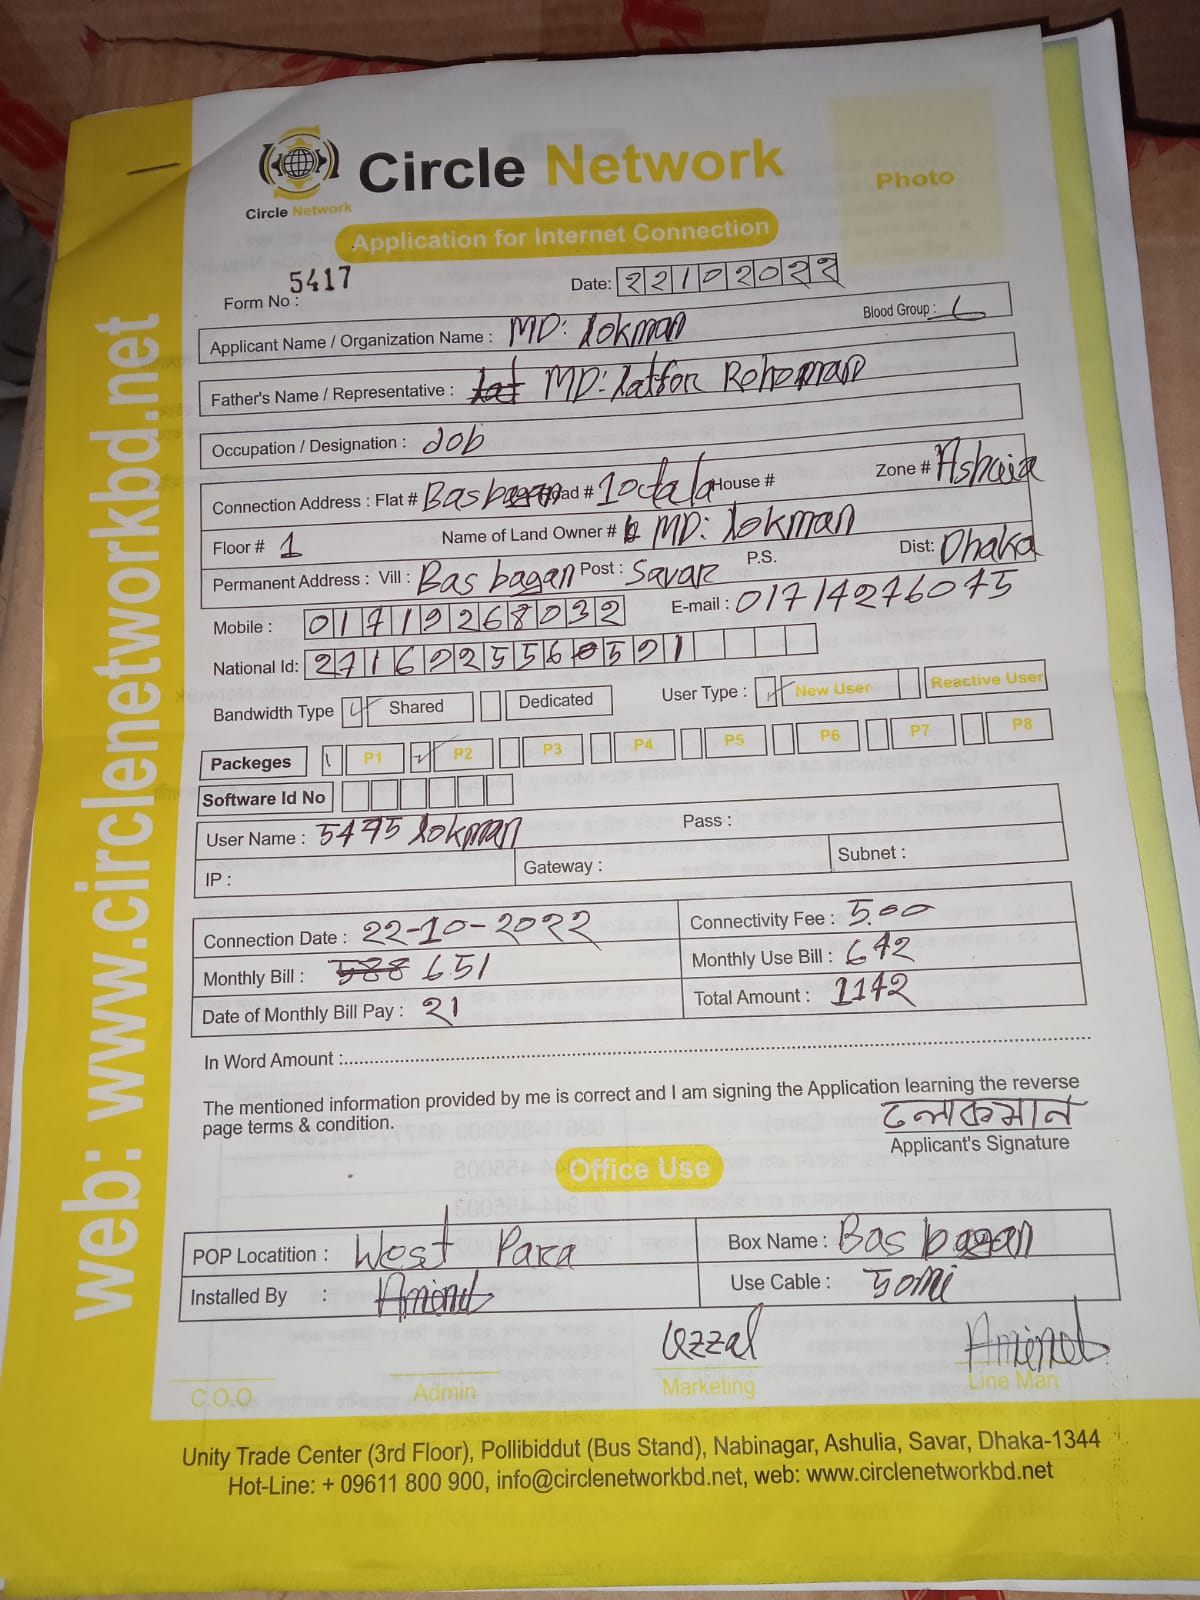 Circle Network
Circle Network
Photo
Application for Internet Connection
Form No : 5417
Date: 22102022
Applicant Name / Organization Name : MD: lokman
Blood Group :
Father's Name / Representative : MD: latfor Rohoman
Occupation / Designation : Job
Connection Address : Flat # Basbagan Road # 10tala House # Zone #
Floor # 1 Name of Land Owner # MD: lokman
Permanent Address : Vill : Bas bagan Post : Savar P.S. Dist: Dhaka
Mobile : 01719268032 E-mail : 01714276075
National Id:
Bandwidth Type Shared Dedicated User Type : New User Reactive User
Packeges P1 P2 P3 P4 P5 P6 P7 P8
Software Id No
User Name : 5475 lokman Pass :
IP : Gateway : Subnet :
Connection Date : 22-10-2022 Connectivity Fee : 500
Monthly Bill : 588 651 Monthly Use Bill : 642
Date of Monthly Bill Pay : 21 Total Amount : 1142
In Word Amount :
The mentioned information provided by me is correct and I am signing the Application learning the reverse
page terms & condition.
লোকমান
Applicant's Signature
Office Use
POP Locatition : West Para Box Name : Bas bagan
Installed By : Use Cable : 50mi
Uzzal
C.O.O. Admin Marketing Line Man
Unity Trade Center (3rd Floor), Pollibiddut (Bus Stand), Nabinagar, Ashulia, Savar, Dhaka-1344
Hot-Line: + 09611 800 900, info@circlenetworkbd.net, web: www.circlenetworkbd.net
web: www.circlenetworkbd.net